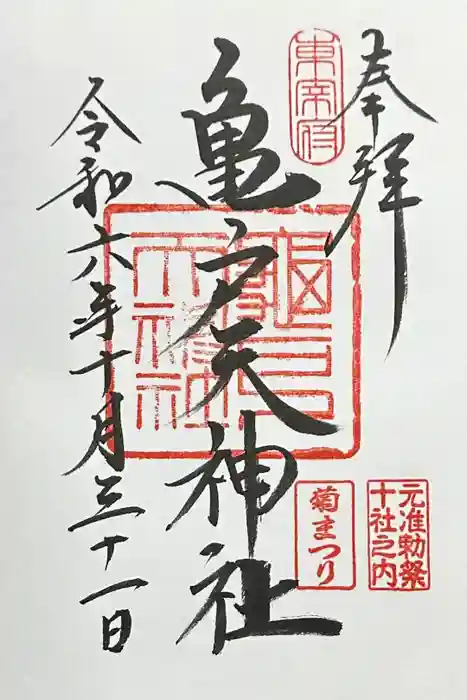 奉拝
東宰府
亀戸天神社
菊まつり
元准勅祭
十社之内
令和六年十月三十一日